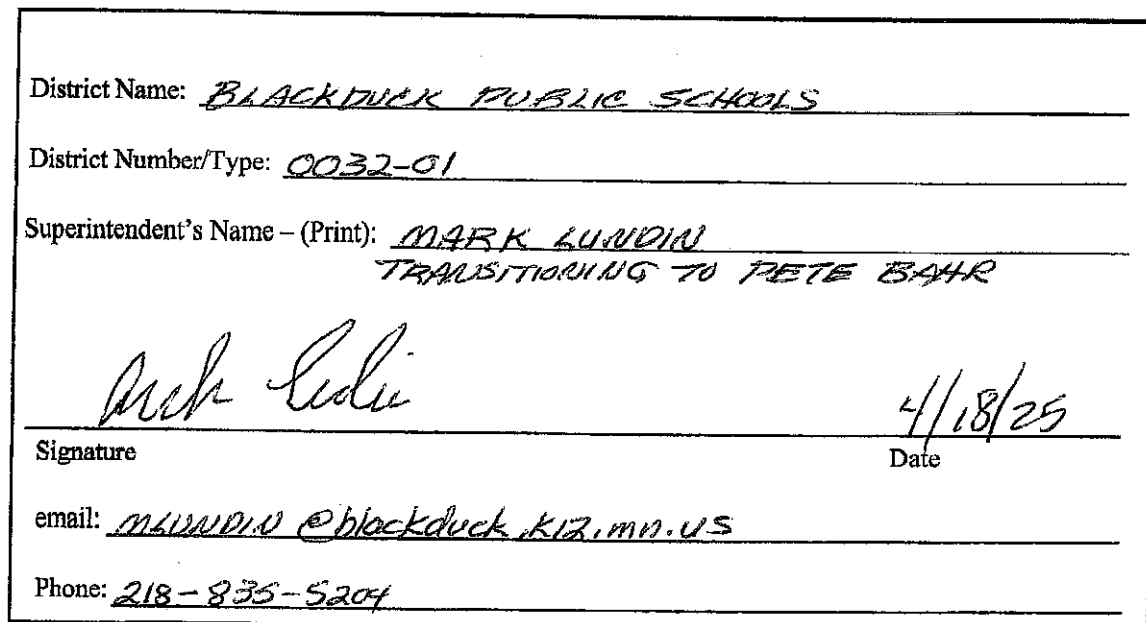 District Name: BLACKDUCK PUBLIC SCHOOLS
District Number/Type: 0032-01
Superintendent's Name – (Print): MARK LUNDIN
TRANSITIONING TO PETE BAHR
4/18/25
Signature Date
email: MLUNDIN @blackduck.k12.mn.us
Phone: 218-835-5204